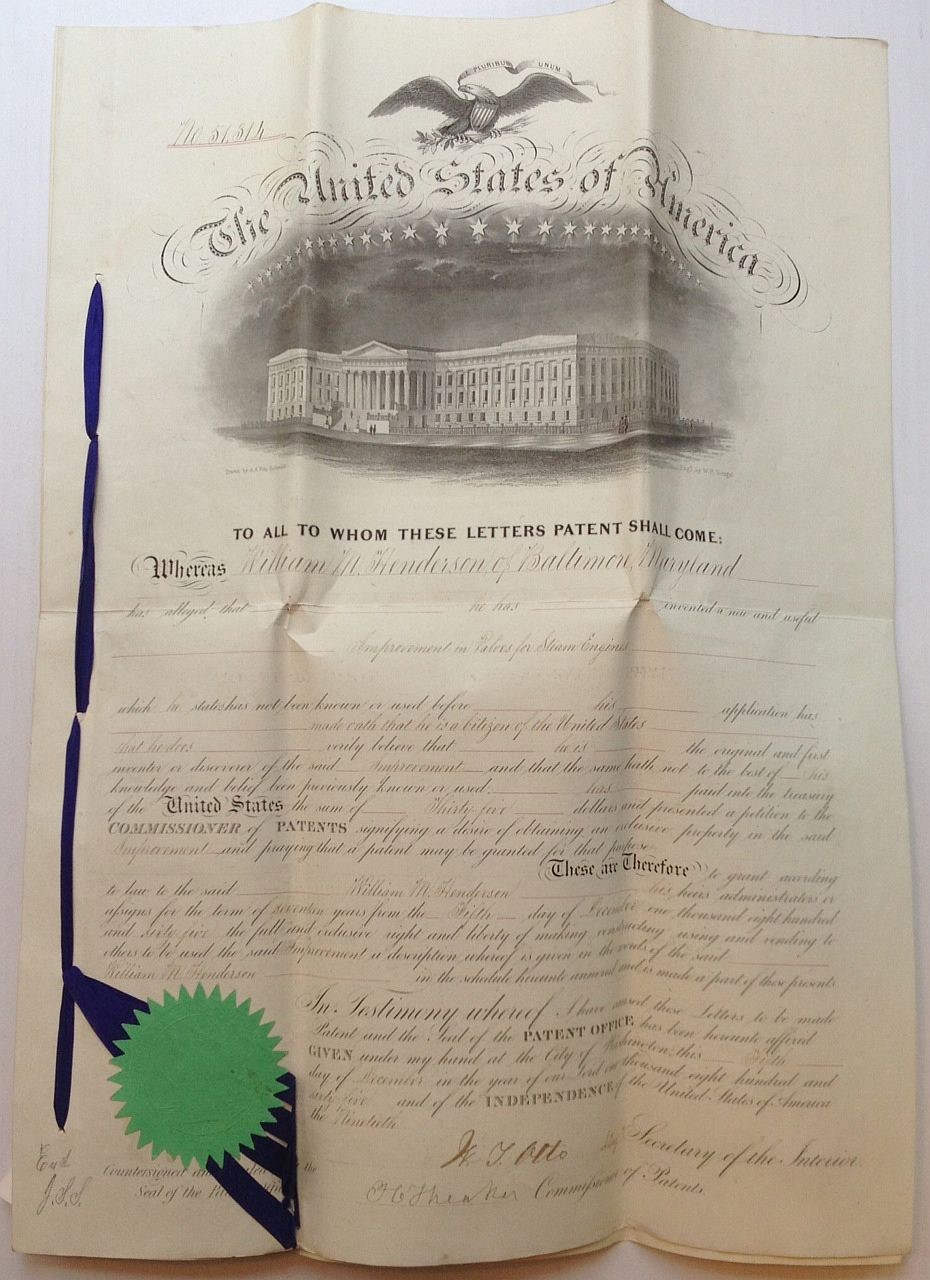 E PLURIBUS UNUM
No 51,514
The United States of America
Drawn by
Eng'd by W.
TO ALL TO WHOM THESE LETTERS PATENT SHALL COME:
Whereas William M. Henderson, of Baltimore, Maryland
has alleged that he has invented a new and useful
Improvement in Valves for Steam Engines
which he states has not been known or used before his application has
made oath that he is a citizen of the United States
that he does verily believe that he is the original and first
inventor or discoverer of the said Improvement and that the same hath not to the best of his
knowledge and belief been previously known or used: has paid into the treasury
of the United States the sum of Thirty five dollars and presented a petition to the
COMMISSIONER of PATENTS signifying a desire of obtaining an exclusive property in the said
Improvement and praying that a patent may be granted for that purpose
These are Therefore to grant according
to law to the said William M. Henderson his heirs administrators or
assigns for the term of seventeen years from the Fifth day of December one thousand eight hundred
and sixty five the full and exclusive right and liberty of making constructing using and vending to
others to be used the said Improvement a description whereof is given in the words of the said
William M. Henderson in the schedule hereunto annexed and is made a part of these presents
In Testimony whereof I have caused these Letters to be made
Patent and the Seal of the PATENT OFFICE has been hereunto affixed
GIVEN under my hand at the City of Washington this Fifth
day of December in the year of our Lord one thousand eight hundred and
sixty five and of the INDEPENDENCE of the United States of America
the Ninetieth
W. T. Otto Secretary of the Interior
Countersigned and the
Seal of the
Commissioner of Patents.
Exd
J.S.S.